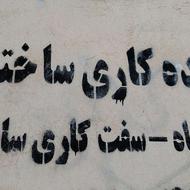 ده کاری ساخت
اه - سفت کاری سا